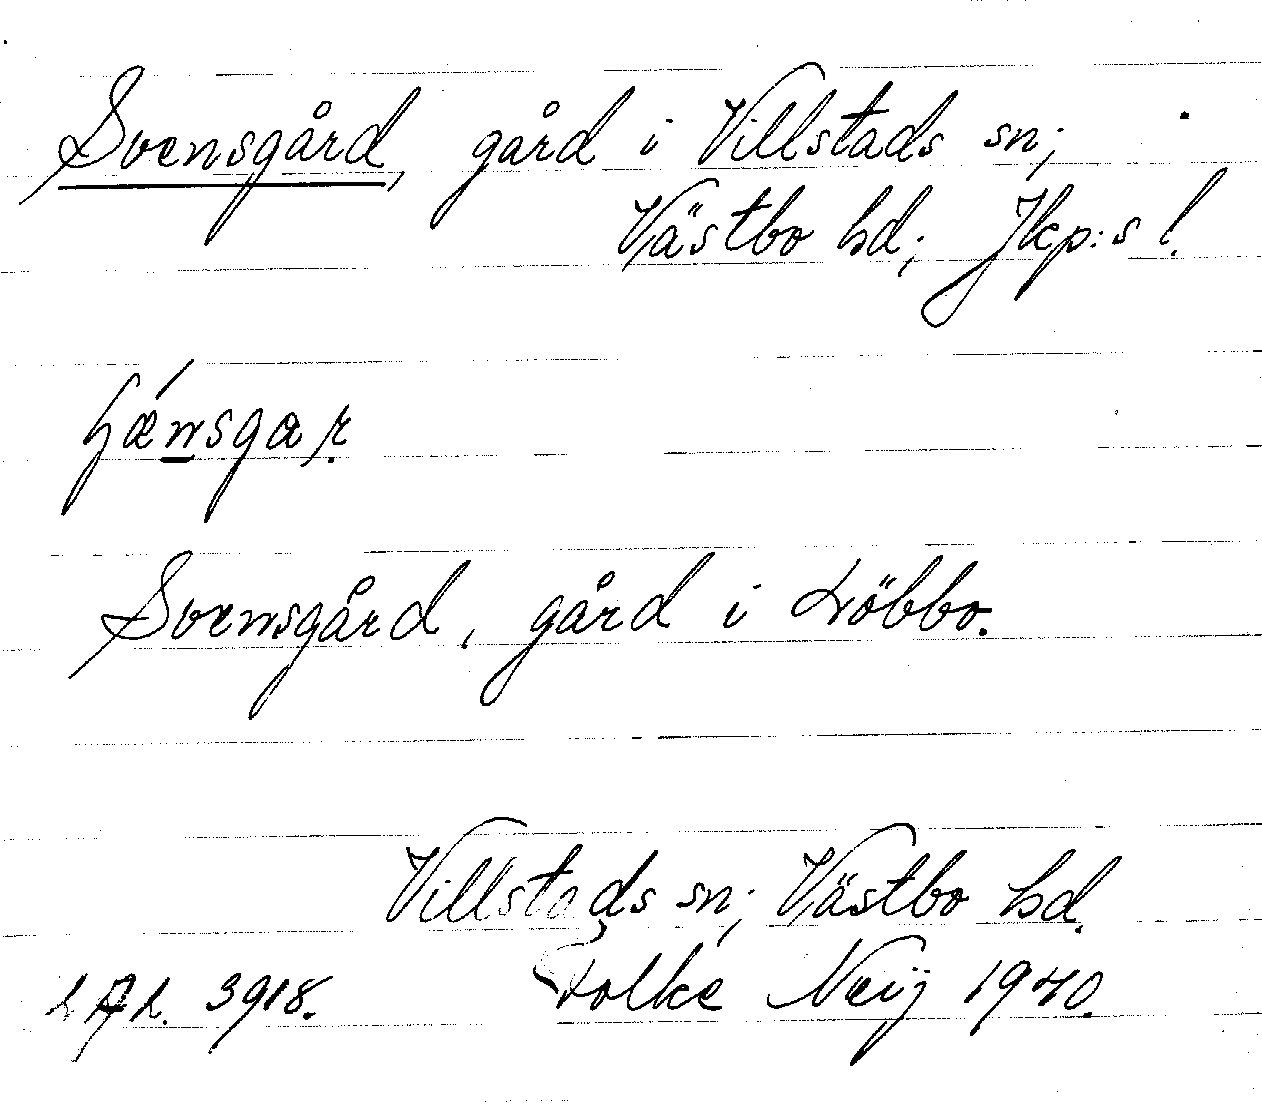 Svensgård, gård i Villstads sn;
Västbo hd; Jkp:s l.
Svensgård, gård i
Villstads sn; Västbo hd.
Folke Neij 1940.
3918.